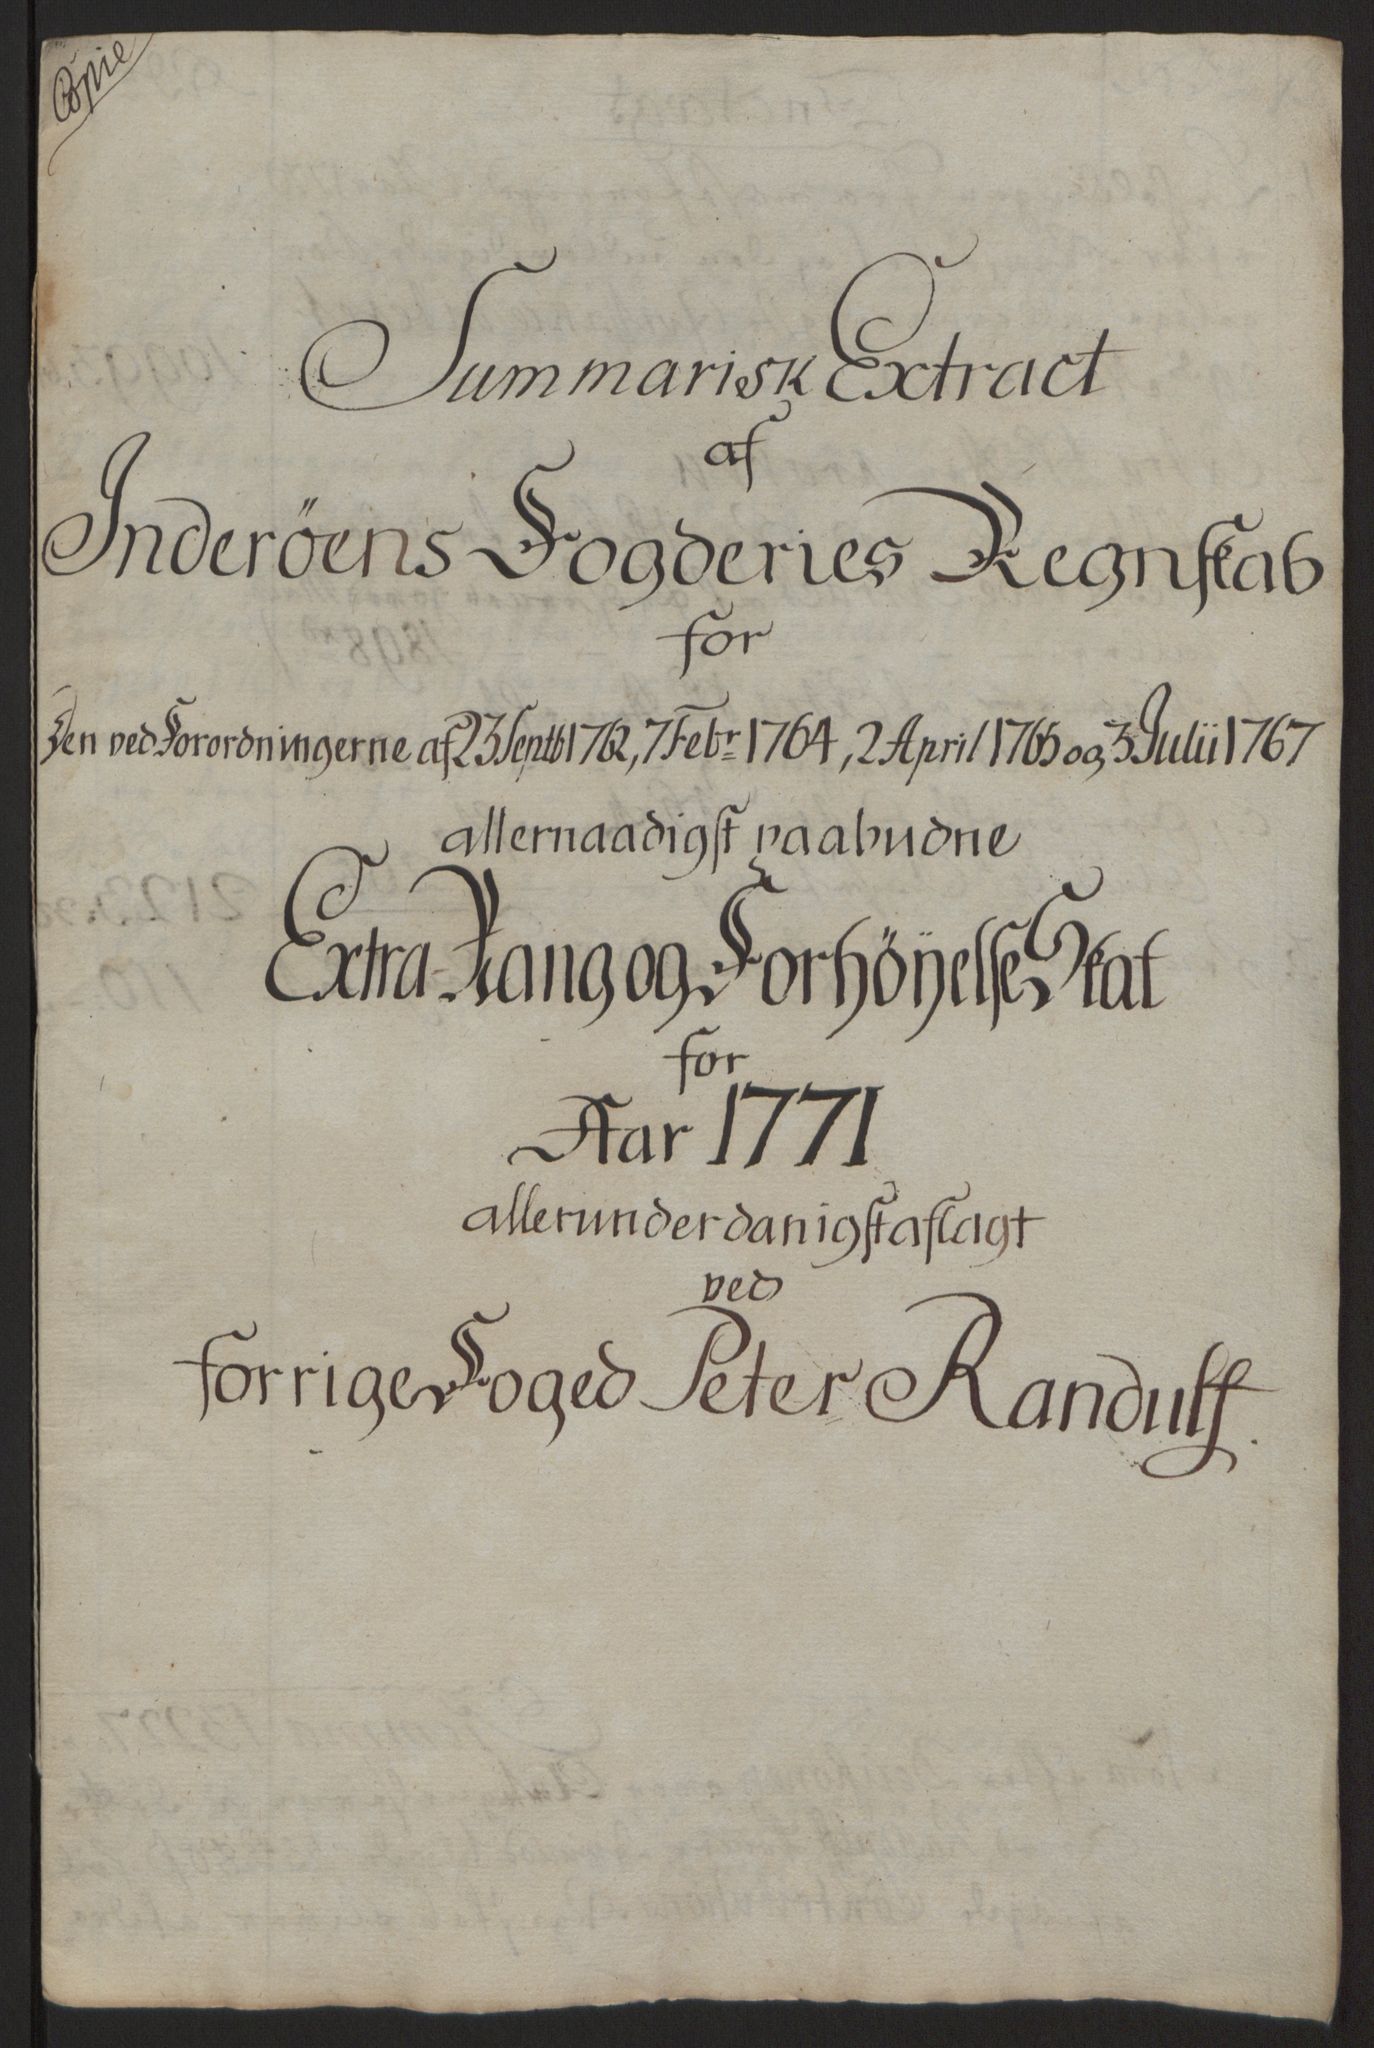 Copie
Summarisk Extract
af
Inderöens Fogderies Regnskab
for
Den ved Forordningerne af 23 Septb 1762, 7 Febr 1764, 2 April 1765 og 3 Julii 1767
allernaadigst paabudne
Extra- Rang og Forhöÿelse Skat
for
Aar 1771
allerunderdanigst aflagt
ved
forrige Foged Peter Randulf.